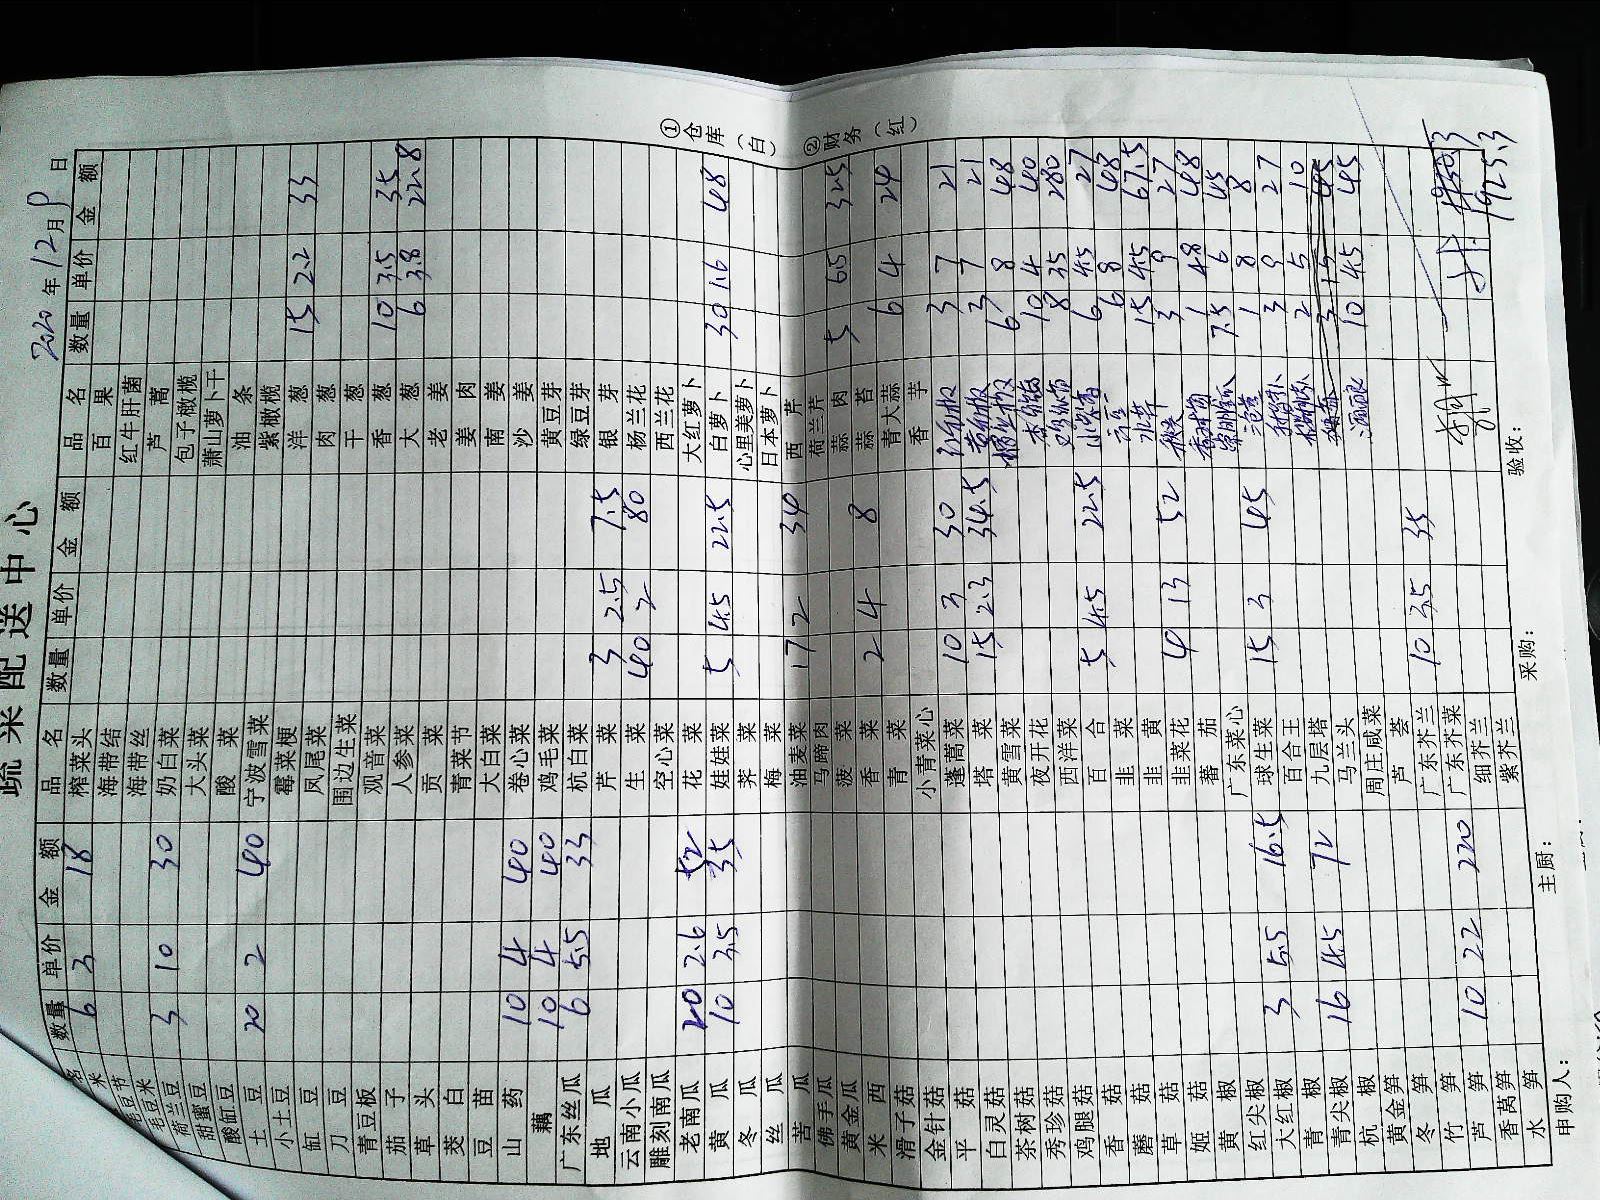 蔬菜配送中心
2020年12月9日
品名 数量 单价 金额 品名 数量 单价 金额 品名 数量 单价 金额
米 6 3 18 榨菜头 百果
毛豆节 海带结 红牛肝菌
毛豆米 海带丝 芦蒿
荷兰豆 3 10 30 奶白菜 包子橄榄
甜蜜豆 大头菜 萧山萝卜干
酸缸豆 酸菜 油条
土豆 20 2 40 宁波雪菜 紫橄榄
小土豆 霉菜梗 洋葱 15 2.2 33
缸豆 凤尾菜 肉葱
刀豆 围边生菜 干葱
青豆板 观音菜 香葱 10 3.5 35
茄子 人参菜 大葱 6 3.8 22.8
草头 贡菜 老姜
茭白 青菜节 姜肉
豆苗 大白菜 南姜
山药 10 4 40 卷心菜 沙姜
藕 10 4 40 鸡毛菜 黄豆芽
广东丝瓜 6 5.5 33 杭白菜 绿豆芽
地瓜 芹菜 3 2.5 7.5 银芽
云南小瓜 生菜 40 2 80 杨兰花
雕刻南瓜 空心菜 西兰花
老南瓜 20 2.6 52 花菜 大红萝卜
黄瓜 10 3.5 35 娃娃菜 5 4.5 22.5 白萝卜 30 1.6 48
冬瓜 荠菜 心里美萝卜
丝瓜 梅菜 日本萝卜
苦瓜 油麦菜 17 2 34 西芹
佛手瓜 马蹄肉 荷兰芹
黄金瓜 菠菜 蒜肉 5 6.5 32.5
米西 香菜 2 4 8 蒜苔 6 4 24
滑子菇 青菜 青大蒜
金针菇 小青菜心 香芋
平菇 蓬蒿菜 10 3 30 红甜椒 3 7 21
白灵菇 塔菜 15 2.3 34.5 黄甜椒 3 7 21
茶树菇 黄雪菜 6 8 48
秀珍菇 夜开花 10 4 40
鸡腿菇 西洋菜 8 35 280
香菇 百合 5 4.5 22.5 6 4.5 27
蘑菇 韭菜 6 8 48
草菇 韭黄 水芹 15 4.5 67.5
姬菇 韭菜花 4 13 52 3 9 27
黄椒 蕃茄 1 48 48
红尖椒 广东菜心 7.5 6 45
大红椒 3 5.5 16.5 球生菜 15 3 45 1 8 8
青椒 百合王 3 9 27
青尖椒 16 4.5 72 九层塔 2 5 10
杭椒 马兰头 3 15 45
黄金笋 周庄咸菜 10 4.5 45
冬笋 芦荟
竹笋 广东芥兰 10 3.5 35
芦笋 10 22 220 广东芥菜
香莴笋 细芥兰
水笋 紫芥兰
1925.3
申购人： 主厨： 采购： 验收：
①仓库（白）
②财务（红）